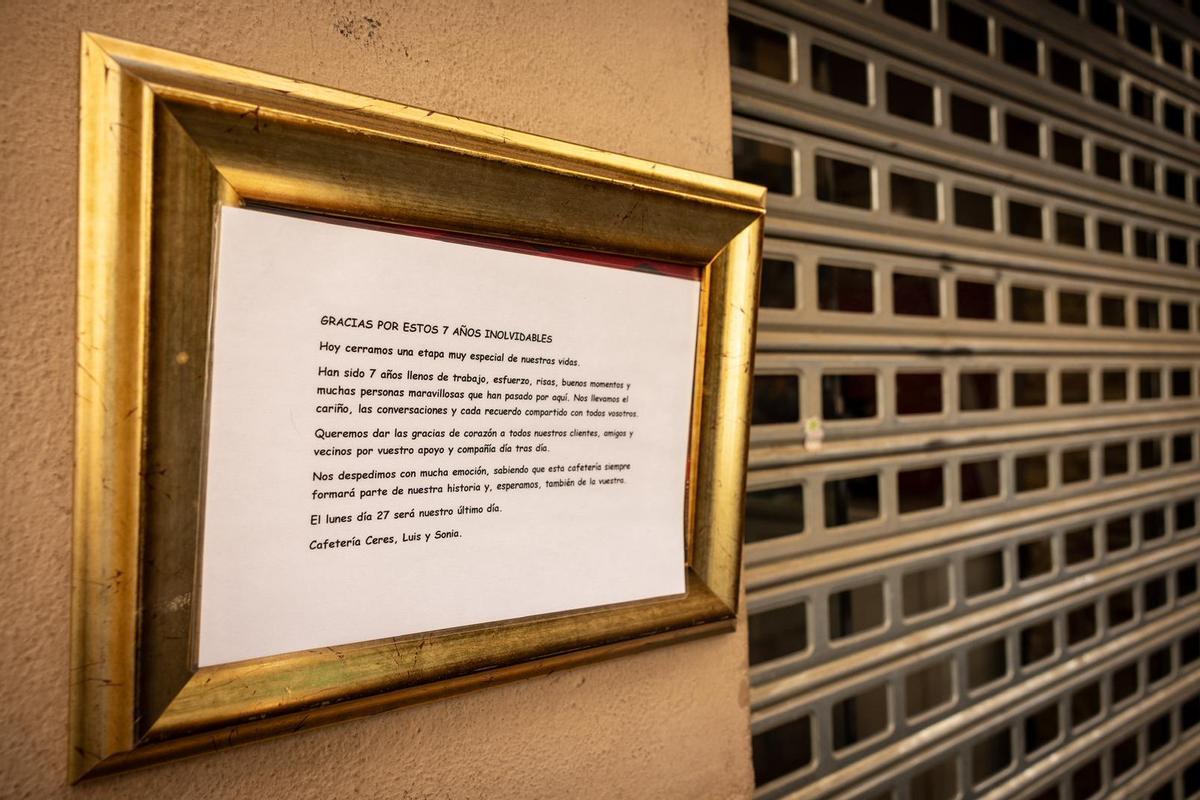 GRACIAS POR ESTOS 7 AÑOS INOLVIDABLES
Hoy cerramos una etapa muy especial de nuestras vidas.
Han sido 7 años llenos de trabajo, esfuerzo, risas, buenos momentos y
muchas personas maravillosas que han pasado por aquí. Nos llevamos el
cariño, las conversaciones y cada recuerdo compartido con todos vosotros.
Queremos dar las gracias de corazón a todos nuestros clientes, amigos y
vecinos por vuestro apoyo y compañía día tras día.
Nos despedimos con mucha emoción, sabiendo que esta cafetería siempre
formará parte de nuestra historia y, esperamos, también de la vuestra.
El lunes día 27 será nuestro último día.
Cafetería Ceres, Luis y Sonia.